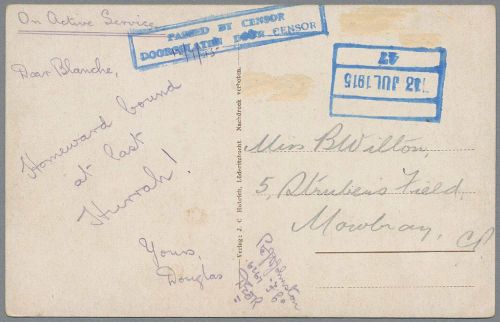 On Active Service
PASSED BY CENSOR
DOORGELATEN DOOR CENSOR
Dear Blanche,
Homeward bound
at last
Hurrah!
Yours,
Douglas
Verlag: J. C. Hubrich, Lüderitzbucht. Nachdruck verboten.
12 JUL 1915
47
Miss B Wilton,
5, Strubens Field,
Mowbray,
CP
Johnston